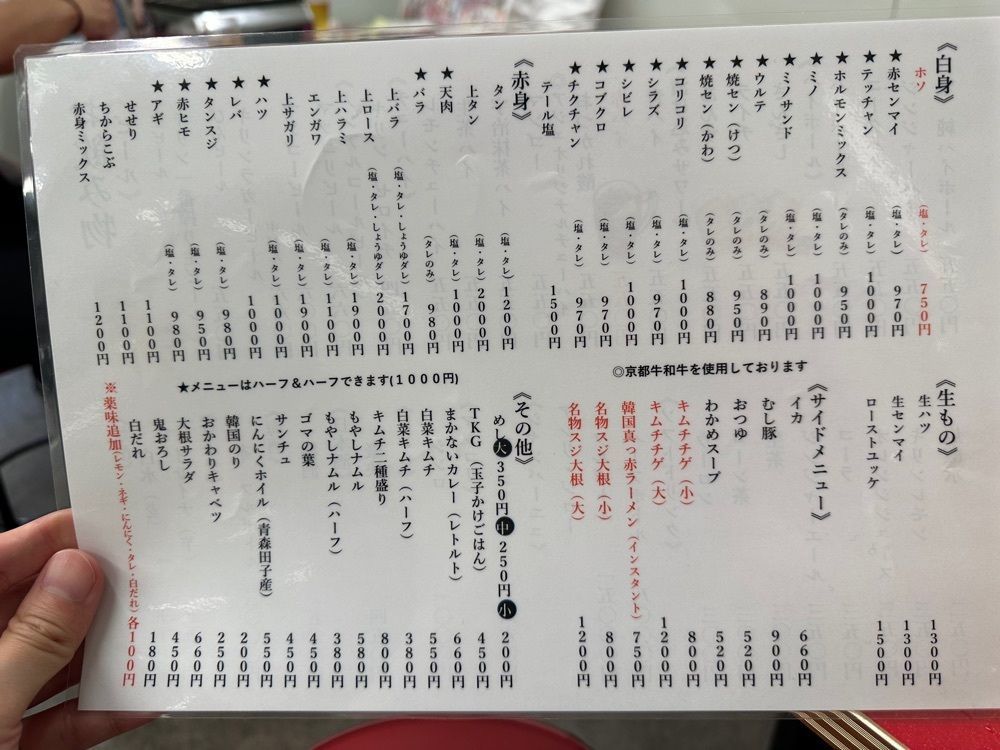 《白身》
ホソ (塩・タレ) 750円
★赤センマイ (塩・タレ) 970円
★テッチャン (塩・タレ) 1000円
★ホルモンミックス (タレのみ) 950円
★ミノ (塩・タレ) 1000円
★ミノサンド (塩・タレ) 1000円
★ウルテ (タレのみ) 890円
★焼セン(けつ) (タレのみ) 950円
★焼セン(かわ) (タレのみ) 880円
★コリコリ (塩・タレ) 1000円
★シラズ (塩・タレ) 970円
★シビレ (塩・タレ) 1000円
★コブクロ (塩・タレ) 970円
★チクチャン (塩・タレ) 970円
テール塩 1500円
《赤身》
タン (塩・タレ) 1200円
上タン (塩・タレ) 2000円
★天肉 (塩・タレ) 1000円
★バラ (タレのみ) 980円
上バラ (塩・タレ・しょうゆダレ) 1700円
上ロース (塩・タレ・しょうゆダレ) 2000円
上ハラミ (塩・タレ) 1900円
エンガワ (塩・タレ) 1100円
上サガリ (塩・タレ) 1900円
★ハツ (塩・タレ) 1000円
★レバ 1000円
★タンスジ (塩・タレ) 980円
★赤ヒモ (塩・タレ) 950円
★アギ (塩・タレ) 980円
せせり 1100円
ちからこぶ 1100円
赤身ミックス 1200円
◎京都牛和牛を使用しております
★メニューはハーフ&ハーフできます(1000円)
《生もの》
生ハツ 1300円
生センマイ 1300円
ローストユッケ 1500円
《サイドメニュー》
イカ 660円
むし豚 900円
おつゆ 520円
わかめスープ 520円
キムチチゲ(小) 800円
キムチチゲ(大) 1200円
韓国真っ赤ラーメン(インスタント) 750円
名物スジ大根(小) 800円
名物スジ大根(大) 1200円
《その他》
めし大350円中250円小 200円
TKG(玉子かけごはん) 450円
まかないカレー(レトルト) 660円
白菜キムチ 550円
白菜キムチ(ハーフ) 380円
キムチ二種盛り 800円
もやしナムル 580円
もやしナムル(ハーフ) 380円
ゴマの葉 450円
サンチュ 450円
にんにくホイル(青森田子産) 550円
韓国のり 250円
おかわりキャベツ 200円
大根サラダ 660円
鬼おろし 450円
白だれ 180円
※薬味追加(レモン・ネギ・にんにく・タレ・白だれ)各100円